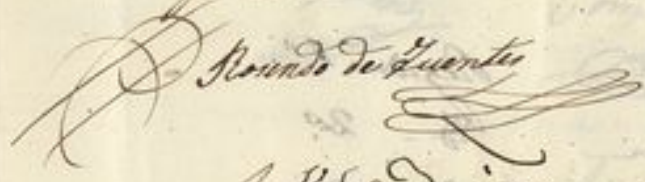 Rosendo de Fuentes